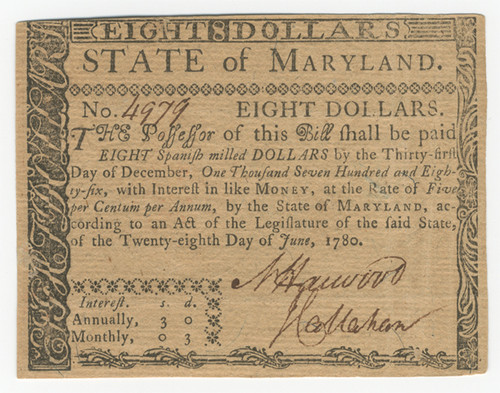 EIGHT 8 DOLLARS
STATE of MARYLAND.
No. 4979 EIGHT DOLLARS.
THE Poſſeſſor of this Bill ſhall be paid
EIGHT Spaniſh milled DOLLARS by the Thirty-firſt
Day of December, One Thouſand Seven Hundred and Eigh-
ty-ſix, with Intereſt in like MONEY, at the Rate of Five
per Centum per Annum, by the State of MARYLAND, ac-
cording to an Act of the Legiſlature of the ſaid State,
of the Twenty-eighth Day of June, 1780.
N Harwood
J Callahan
Intereſt. s. d.
Annually, 3 0
Monthly, 0 3